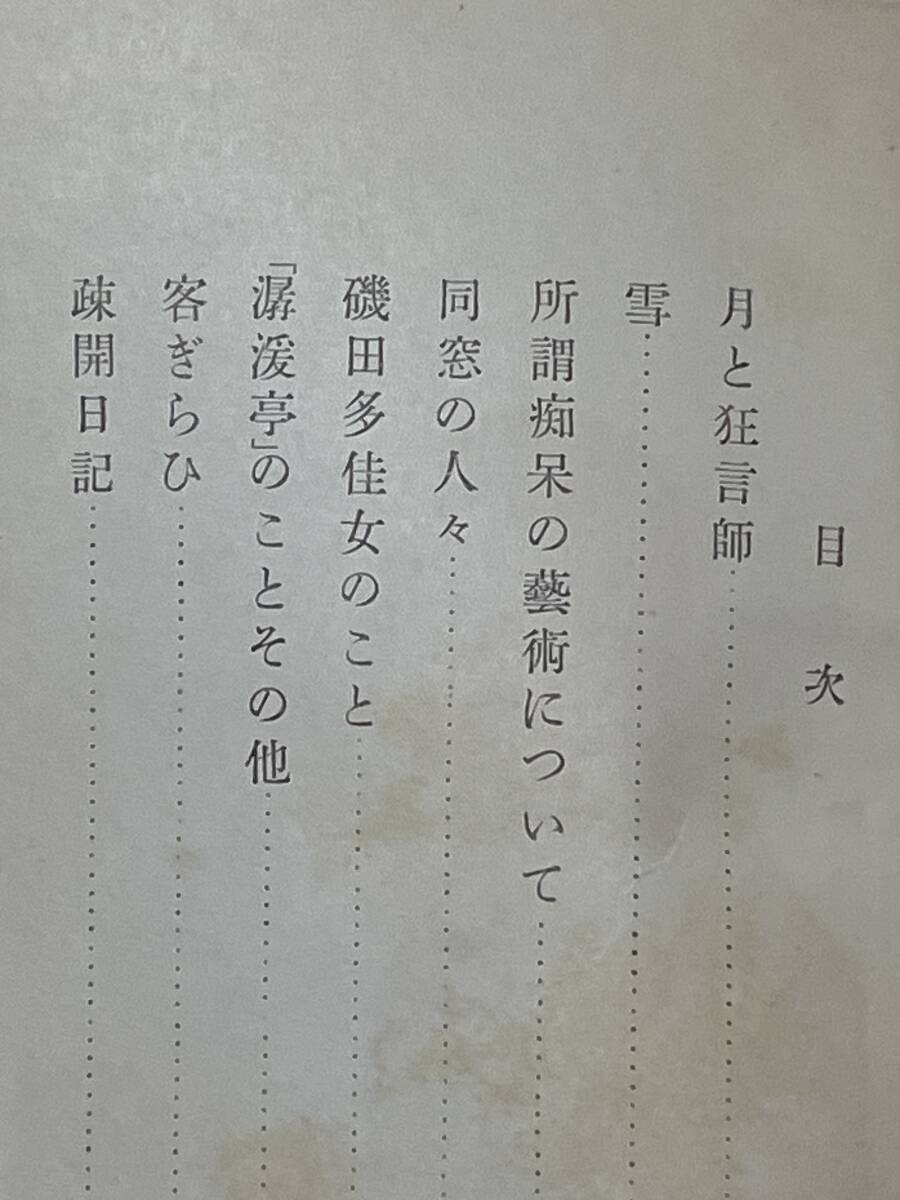 目次
月と狂言師
雪
所謂痴呆の藝術について
同窓の人々
磯田多佳女のこと
「潺湲亭」のことその他
客ぎらひ
疎開日記